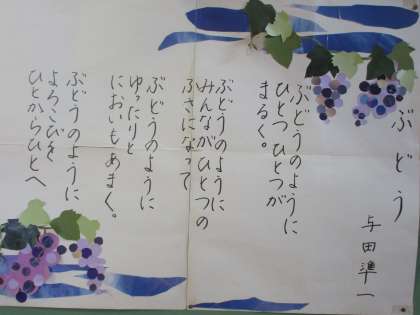 ぶどう
与田準一
ぶどうのように
ひとつひとつが
まるく。
ぶどうのように
みんながひとつの
ふさになって
ぶどうのように
ゆったりと
においもあまく。
ぶどうのように
よろこびを
ひとからひとへ